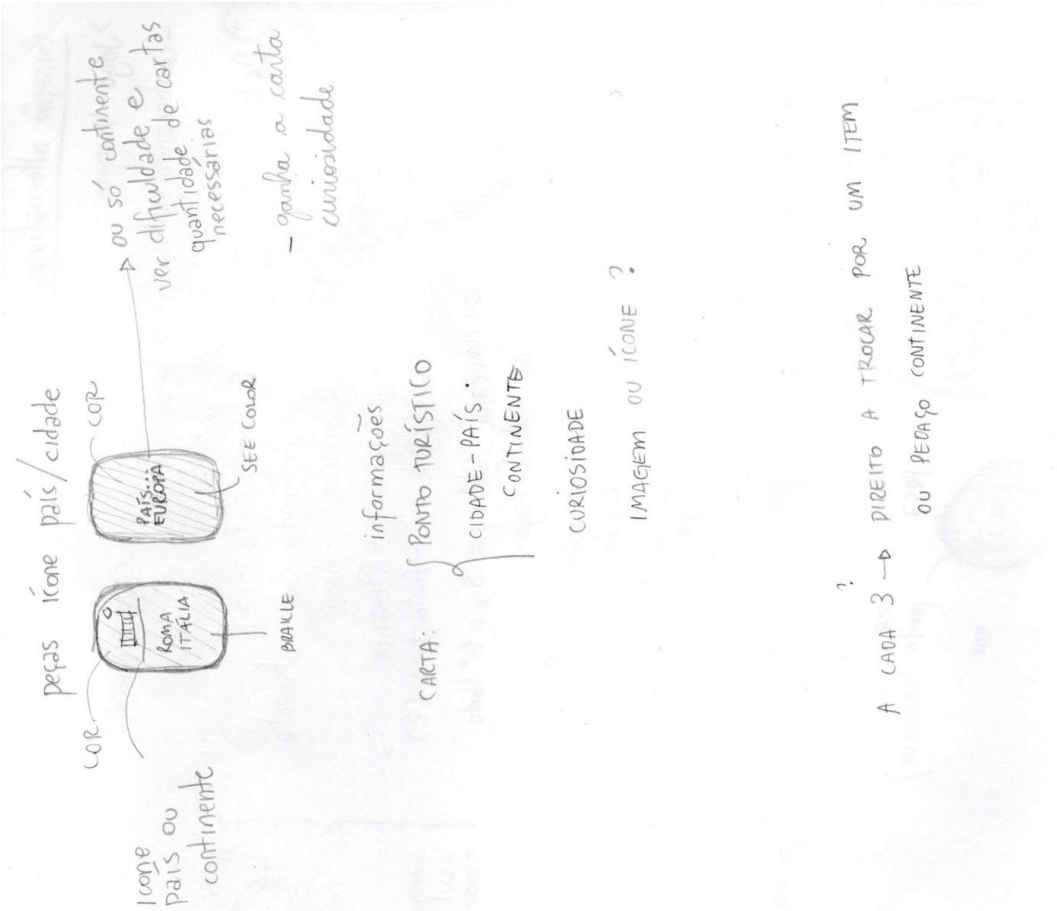 peças ícone país/cidade
COR
COR
ROMA
ITÁLIA
PAÍS...
EUROPA
BRAILLE
SEE COLOR
Ícone
país ou
continente
ou só continente
ver dificuldade e
quantidade de cartas
necessárias
- ganha a carta
curiosidade
informações
CARTA: PONTO TURÍSTICO
CIDADE-PAÍS.
CONTINENTE
CURIOSIDADE
IMAGEM OU ÍCONE ?
?
A CADA 3 → DIREITO A TROCAR POR UM ITEM
OU PEDAÇO CONTINENTE